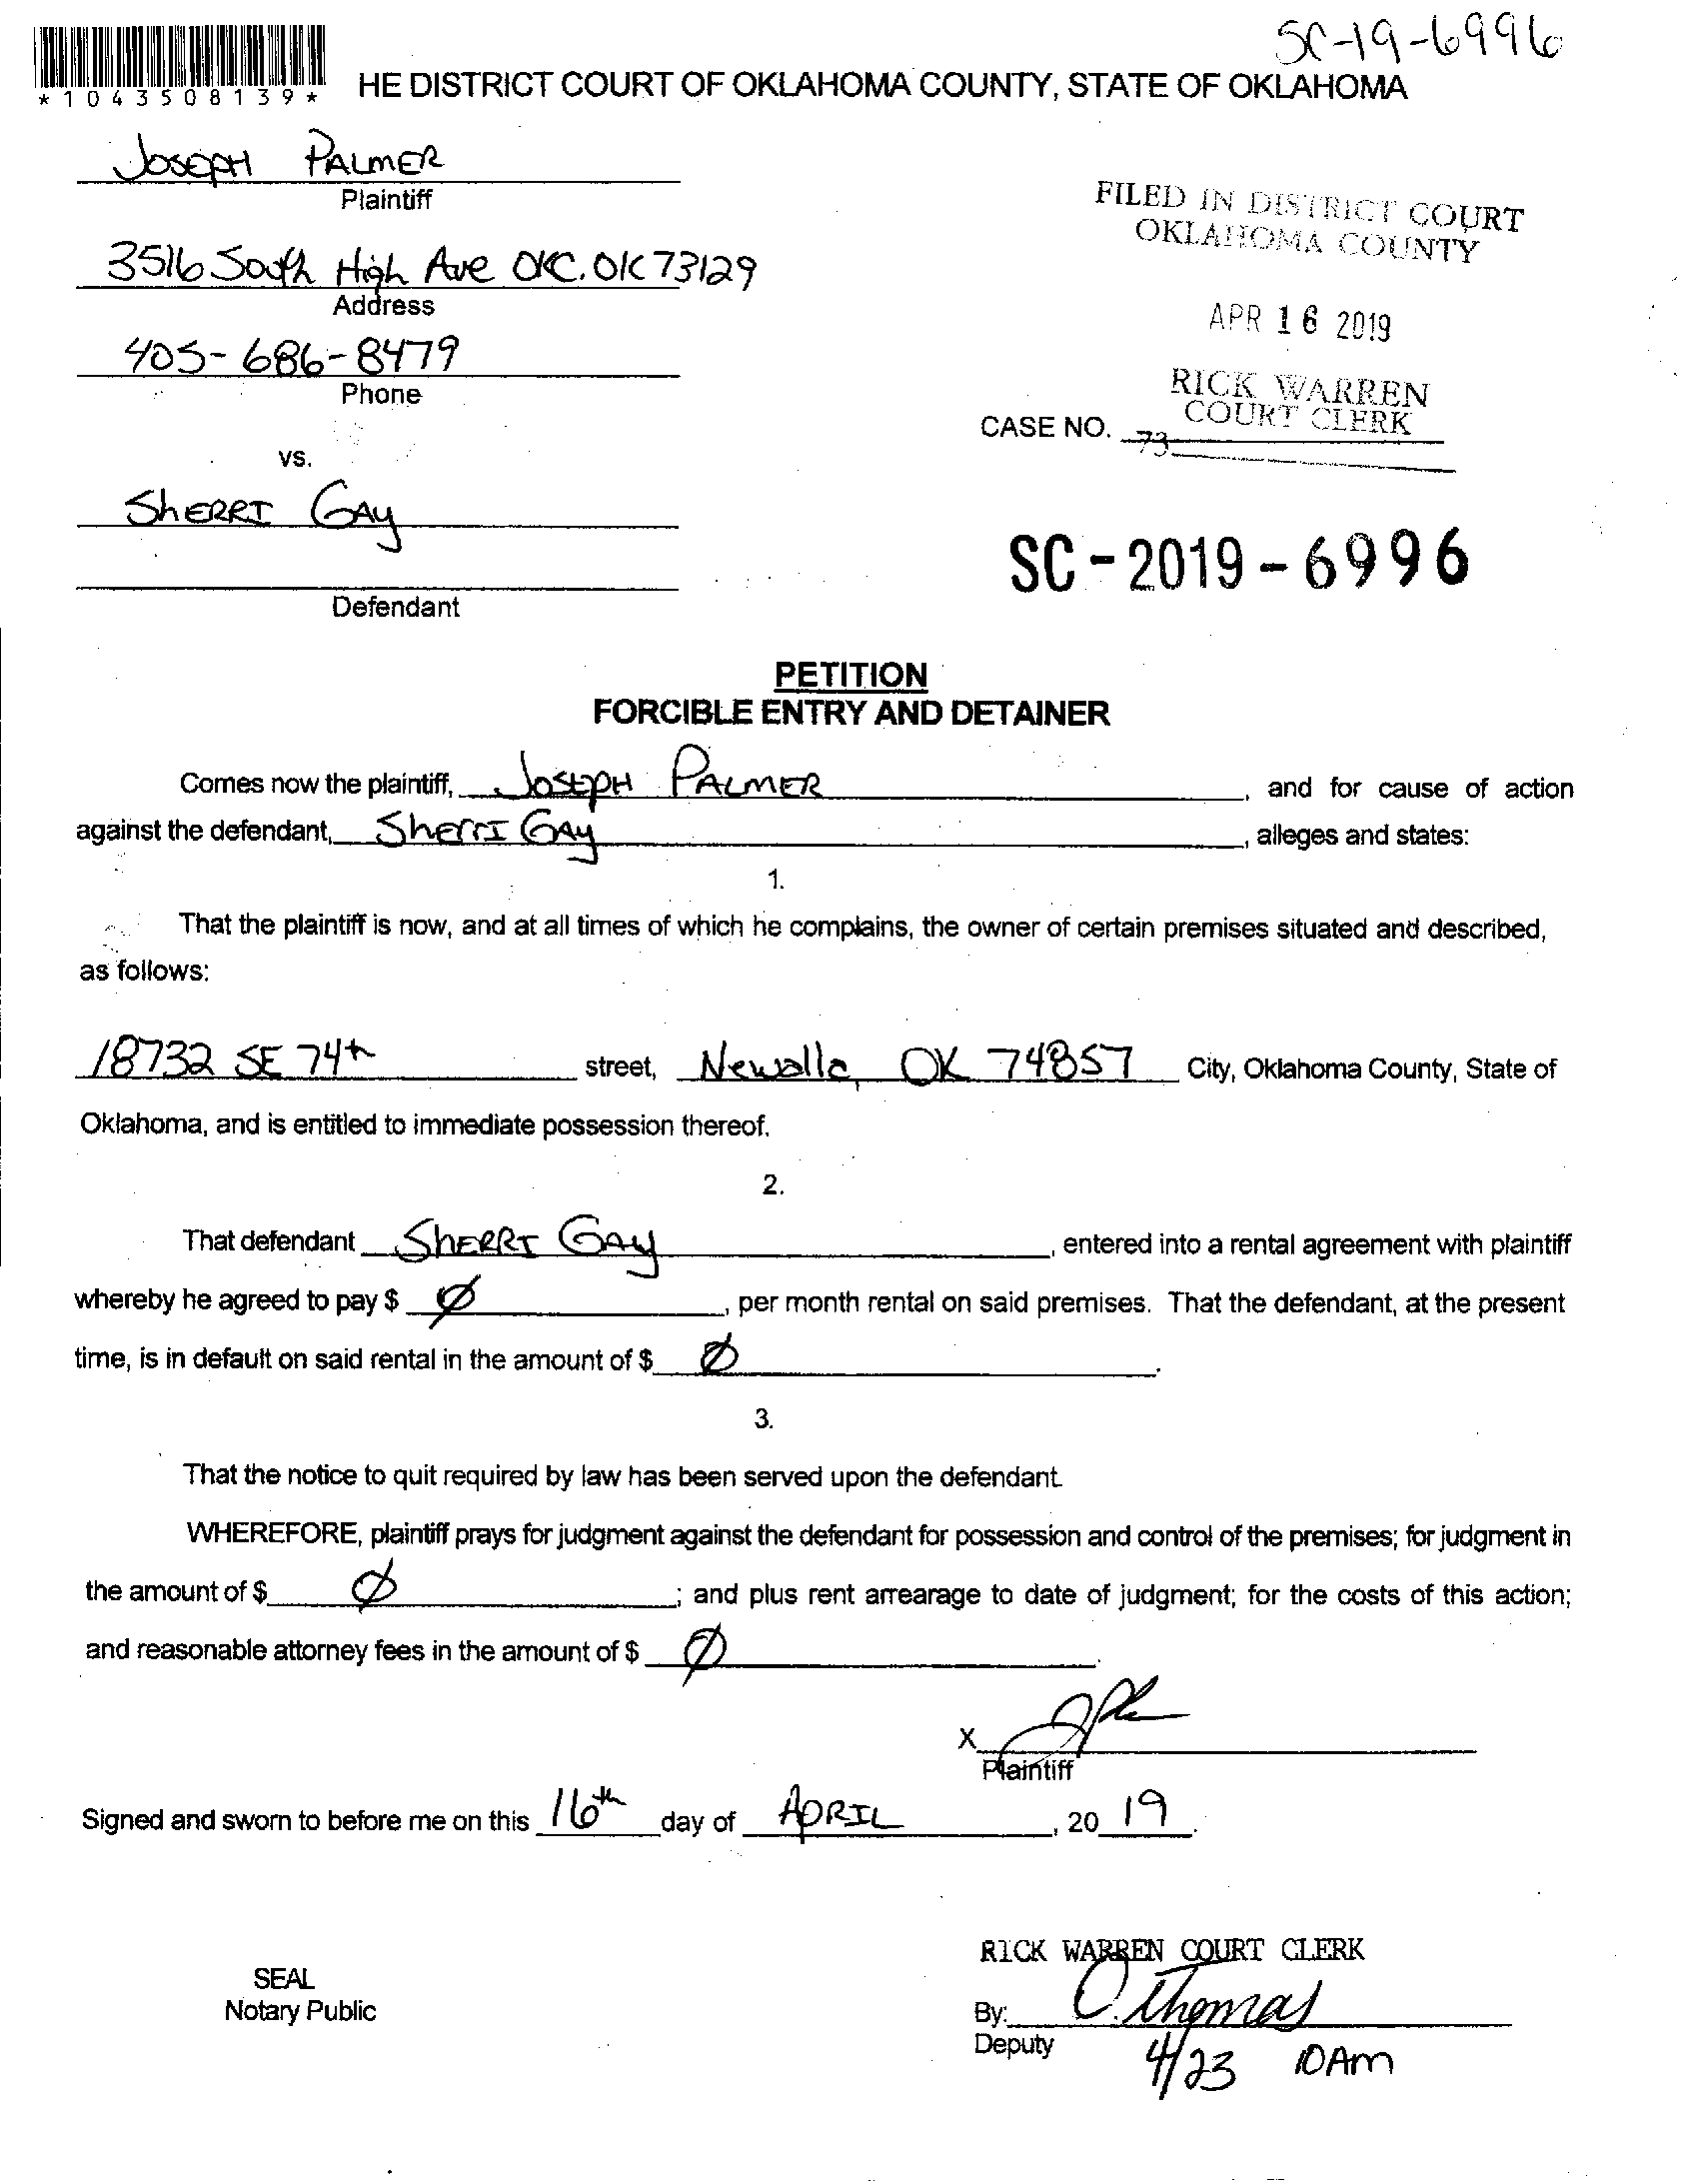 SC-19-6996
*1043508139*
HE DISTRICT COURT OF OKLAHOMA COUNTY, STATE OF OKLAHOMA
JOSEPH PALMER
Plaintiff
3516 South High Ave OKC. OK 73129
Address
405-686-8479
Phone
vs.
SHERRI GAY
Defendant
FILED IN DISTRICT COURT
OKLAHOMA COUNTY
APR 16 2019
RICK WARREN
COURT CLERK
CASE NO.
73
SC-2019-6996
PETITION
FORCIBLE ENTRY AND DETAINER
Comes now the plaintiff, JOSEPH PALMER, and for cause of action
against the defendant, Sherri GAY, alleges and states:
1.
That the plaintiff is now, and at all times of which he complains, the owner of certain premises situated and described,
as follows:
18732 SE 74th street, Newalla, OK 74857 City, Oklahoma County, State of
Oklahoma, and is entitled to immediate possession thereof.
2.
That defendant SHERRI GAY, entered into a rental agreement with plaintiff
whereby he agreed to pay $ Ø, per month rental on said premises. That the defendant, at the present
time, is in default on said rental in the amount of $ Ø.
3.
That the notice to quit required by law has been served upon the defendant.
WHEREFORE, plaintiff prays for judgment against the defendant for possession and control of the premises; for judgment in
the amount of $ Ø; and plus rent arrearage to date of judgment; for the costs of this action;
and reasonable attorney fees in the amount of $ Ø.
X
Plaintiff
Signed and sworn to before me on this 16th day of APRIL, 2019.
RICK WARREN COURT CLERK
SEAL
Notary Public
By: C. Thomas
Deputy
4/23 10AM